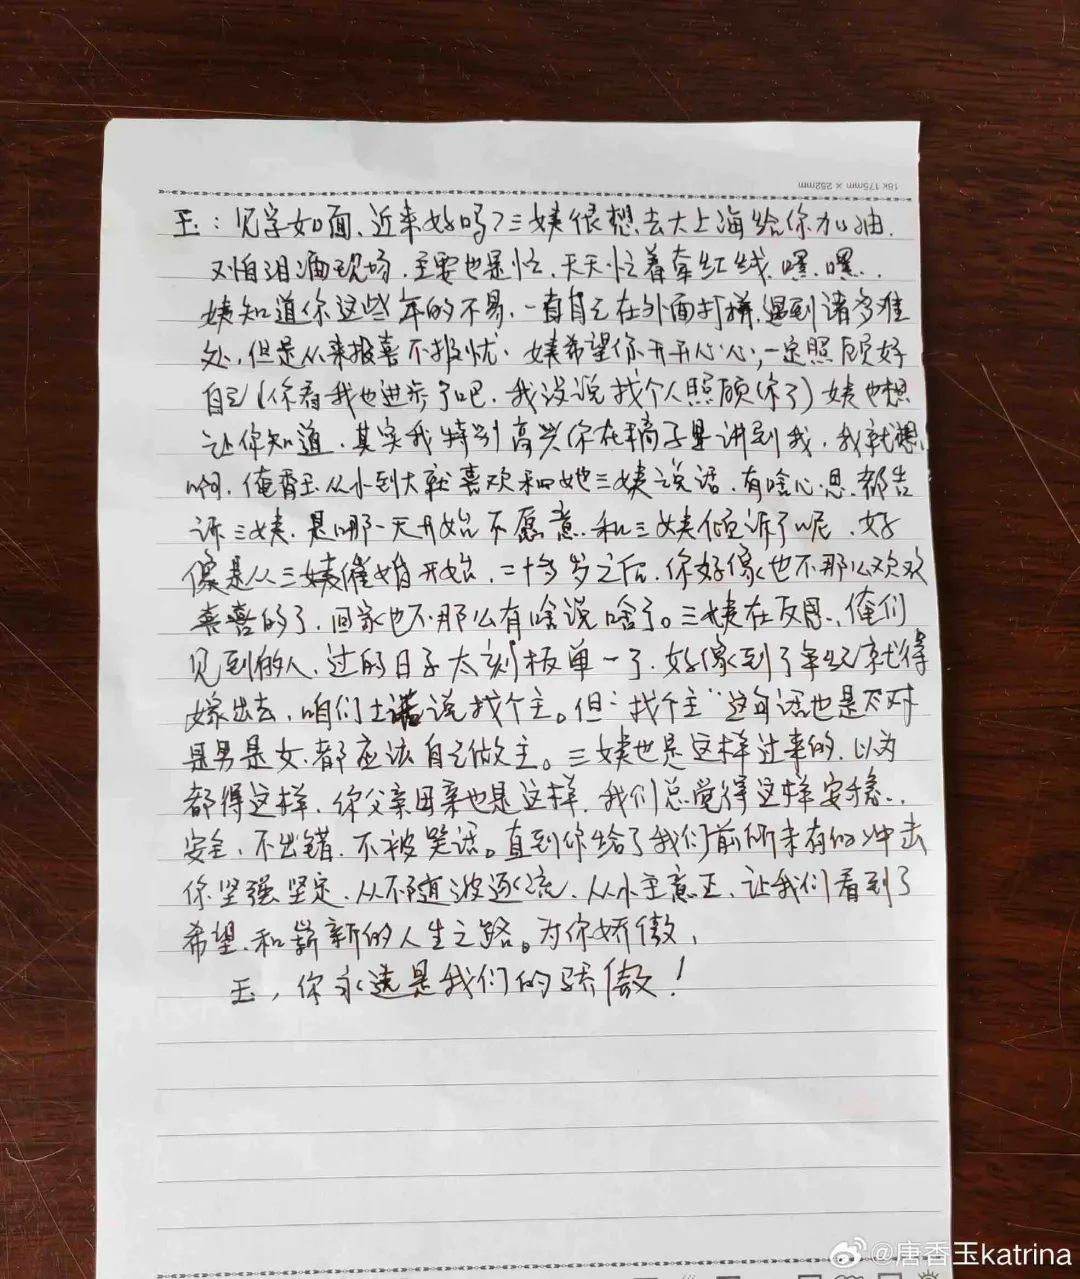 18K 175mm × 252mm
玉：见字如面、近来好吗？三姨很想去大上海给你加油.
又怕泪洒现场. 主要也是忙、天天忙着牵红线. 嘿、嘿..
姨知道你这些年的不易. 一直自己在外面打拼, 遇到诸多难
处, 但是从来报喜不报忧. 姨希望你开开心心, 一定照顾好
自己(你看我也进步了吧. 我没说找个人照顾你了) 姨也想
让你知道. 其实我特别高兴你在稿子里讲到我. 我就想
啊. 俺香玉从小到大就喜欢和她三姨说话. 有啥心思. 都告
诉三姨. 是哪一天开始不愿意. 和三姨倾诉了呢. 好
像是从三姨催婚开始. 二十多岁之后. 你好像也不那么欢欢
喜喜的了. 回家也不那么有啥说啥了。三姨在反思. 俺们
见到的人. 过的日子太刻板单一了. 好像到了年纪就得
嫁出去, 咱们土话说找个主。但“找个主”这句话也是不对
是男是女. 都应该自己做主。三姨也是这样过来的. 以为
都得这样. 你父亲母亲也是这样. 我们总觉得这样安稳..
安全, 不出错. 不被笑话。直到你给了我们前所未有的冲击
你坚强坚定. 从不随波逐流. 从小主意正. 让我们看到了
希望. 和崭新的人生之路。为你骄傲,
玉, 你永远是我们的骄傲！
@唐香玉katrina